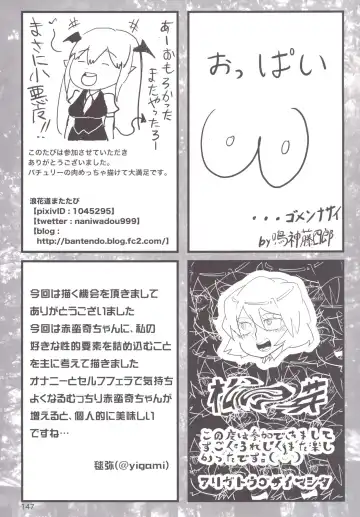 あーおもろかった
またやったろー
まさに小悪魔!!
このたびは参加させていただき
ありがとうございました。
パチュリーの肉めっちゃ描けて大満足です。
浪花道またたび
【pixivID：1045295】
【twetter：naniwadou999】
【blog：
http://bantendo.blog.fc2.com/】
おっぱい
・・・ゴメンナサイ
by 鳴神藤四郎
今回は描く機会を頂きまして
ありがとうございました
今回は赤蛮奇ちゃんに、私の
好きな性的要素を詰め込むこと
を主に考えて描きました
オナニーとセルフフェラで気持ち
よくなるむっちり赤蛮奇ちゃんが
増えると、個人的に美味しい
ですね…
毬弥(@yigami)
この度は参加できまして
147